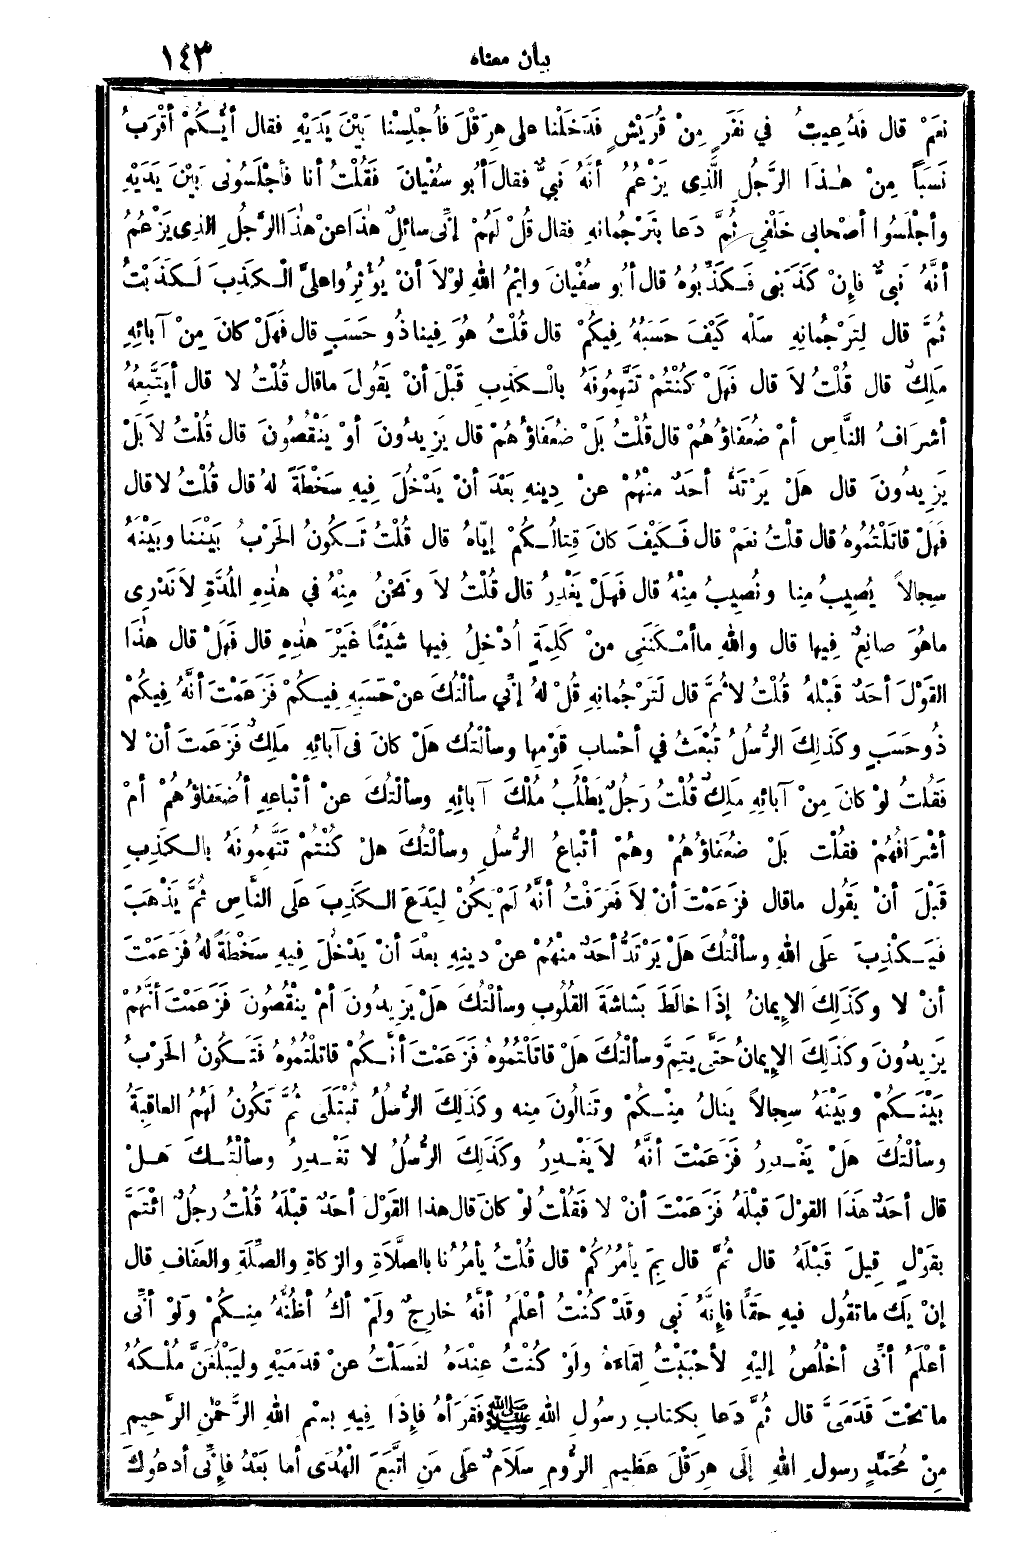 بيان معناه ١٤٣
نعَمْ قال فَدُعِيتُ في نَفَرٍ مِنْ قُرَيْشٍ فَدَخَلْنا على هِرَقْلَ فَأُجْلِسْنا بَيْنَ يَدَيْهِ فقال أيُّكُمْ أقْرَبُ
نَسَبًا مِنْ هٰذَا الرَّجُلِ الَّذِى يَزْعُمُ أنَّهُ نَبِيٌّ فقال أَبُو سُفْيانَ فَقُلْتُ أنا فأجْلَسُونى بَيْنَ يَدَيْهِ
وأجْلَسُوا أصْحابى خَلْفِي ثُمَّ دَعا بِتَرْجُمانِهِ فقال قُلْ لَهُمْ إنِّى سائلٌ هٰذَا عنْ هٰذَا الرَّجُلِ الذى يَزْعُمُ
أنَّهُ نَبيٌّ فإنْ كَذَبَنِى فَكَذِّبُوهُ قال أبُو سفْيانَ وايْمُ اللهِ لوْلاَ أنْ يُؤْثِرُوا علىَّ الْكَذِبَ لَكَذَبْتُ
ثُمَّ قال لِتَرْجُمانِهِ سَلْه كَيْفَ حَسَبُهُ فِيكُمْ قال قُلْتُ هُوَ فِينا ذُو حَسَبٍ قال فَهَلْ كانَ مِنْ آبائِهِ
مَلِكٌ قال قُلْتُ لاَ قال فَهَلْ كُنْتُمْ تَتَّهِمُونَهُ بالْكَذِبِ قَبْلَ أنْ يَقُولَ ماقال قُلْتُ لا قال أيَتَّبِعُهُ
أشْرَافُ النَّاسِ أمْ ضُعَفاؤُهُمْ قال قُلْتُ بَلْ ضُعَفاؤُهُمْ قال يَزِيدُونَ أوْ يَنْقُصُونَ قال قُلْتُ لاَ بَلْ
يَزِيدُونَ قال هَلْ يَرْتَدُّ أحَدٌ منْهُمْ عنْ دِينِهِ بَعْدَ أنْ يَدْخُلَ فِيهِ سَخْطَةً لهُ قال قُلْتُ لا قال
فَهَلْ قاتَلْتُمُوهُ قال قلْتُ نعَمْ قال فَكَيْفَ كانَ قِتالُكُمْ إيّاهُ قال قُلْتُ تَكُونُ الحَرْبُ بَيْنَنا وبَيْنَهُ
سِجالاً يُصِيبُ مِنا ونُصِيبُ مِنْهُ قال فَهَلْ يَغْدِرُ قال قُلْتُ لاَ ونَحْنُ مِنْهُ في هٰذِهِ المُدَّةِ لاَ نَدْرِى
ماهُوَ صانِعٌ فِيها قال واللهِ ماأمْكَنَنِى منْ كَلِمَةٍ أُدْخِلُ فِيها شَيْئًا غَيْرَ هٰذِهِ قال فَهَلْ قال هٰذَا
القَوْلَ أحَدٌ قَبْلهُ قُلْتُ لا ثُمَّ قال لتَرْجُمانِهِ قُلْ لهُ إنِّي سألْتُكَ عنْ حَسَبِهِ فِيكُمْ فَزَعَمْتَ أنَّهُ فِيكُمْ
ذُو حَسَبٍ وكَذٰلِكَ الرُّسُلُ تُبْعَثُ في أحْسابِ قَوْمِها وسألْتُك هَلْ كانَ فى آبائِهِ مَلِكٌ فَزَعَمْتَ أنْ لا
فَقُلْتُ لوْ كانَ مِنْ آبائِهِ مَلِكٌ قُلْتُ رَجُلٌ يَطْلُبُ مُلْكَ آبائِهِ وسألْتُكَ عنْ أتْباعِهِ أضُعَفاؤُهُمْ أمْ
أشْرَافُهُمْ فقُلْت بَلْ ضُعَفاؤُهُمْ وهُمْ أتْباعُ الرُّسُلِ وسألْتُكَ هلْ كُنْتُمْ تَتَّهِمُونَهُ بالكَذِبِ
قَبْلَ أنْ يَقُول ماقال فَزَعَمْتَ أنْ لاَ فَعَرَفْتُ أنَّهُ لَمْ يَكُنْ لِيَدَعَ الكَذِبَ عَلَى النَّاسِ ثُمَّ يَذْهَبَ
فَيَكْذِبَ عَلَى اللهِ وسألْتُكَ هَلْ يَرْتَدُّ أحَدٌ منْهُمْ عنْ دينِهِ بعْدَ أنْ يَدْخُلَ فِيهِ سَخْطَةً لهُ فَزَعَمْتَ
أنْ لا وكَذَلِكَ الإِيمانُ إذَا خالَطَ بَشاشَةَ القُلُوب وسألْتُكَ هَلْ يَزِيدُونَ أمْ ينْقُصُونَ فَزَعَمْتَ أنَّهُمْ
يَزِيدُونَ وكَذَلِكَ الإِيمانُ حَتَّى يَتِمَّ وسألْتُكَ هَلْ قاتَلْتُمُوهُ فَزَعَمْتَ أنَّكُمْ قاتلْتُمُوهُ فَتَكُونُ الحَرْبُ
بَيْنَكُمْ وبَيْنَهُ سِجالاً يَنالُ مِنْكُمْ وتَنالُونَ مِنه وكَذَلِكَ الرُّسُلُ تُبْتَلَى ثُمَّ تَكُونُ لَهُمُ العاقِبَةُ
وسألْتُكَ هَلْ يَغْدِرُ فَزَعَمْتَ أنَّهُ لاَ يَغْدِرُ وكَذَلِكَ الرُّسُلُ لا تَغْدِرُ وسألْتُكَ هَلْ
قال أحَدٌ هَذَا القوْلَ قبْلَهُ فَزَعَمْتَ أنْ لا فَقُلْتُ لو كانَ قال هذا القوْل أحَدٌ قبْلَهُ قُلْتُ رجُلٌ ائْتَمَّ
بقَوْلٍ قِيلَ قَبْلَهُ قال ثُمَّ قال بِمَ يأمُرُكُمْ قال قُلْتُ يأمُرُنا بالصَّلاَةِ والزكاةِ والصِّلَةِ والعَفافِ قال
إنْ يَك ماتَقُول فيهِ حقًّا فإنَّهُ نَبي وقَدْ كُنْتُ أعْلَمُ أنَّهُ خارِجٌ ولَمْ أكُ أظُنُّهُ مِنكُمْ ولَوْ أنِّى
أعْلَمُ أنِّى أخْلُصُ إليْهِ لأحْبَبْتُ لِقاءَهُ ولَوْ كُنْتُ عِنْدَهُ لغَسَلْتُ عنْ قدَمَيْهِ وليَبْلُغَنَّ مُلْكُهُ
ماتَحْتَ قَدَمَىَّ قال ثُمَّ دَعا بِكتابِ رسُولِ اللهِ ﷺ فَقرَأهُ فإذَا فِيهِ بسْمِ اللهِ الرَّحْمٰنِ الرَّحِيمِ
مِنْ مُحَمَّدٍ رسولِ اللهِ إلَى هِرَقْلَ عظِيمِ الرُّومِ سَلاَمٌ على مَنِ اتَّبَعَ الهُدَى أما بَعْدُ فإِنِّى أدعُوكَ